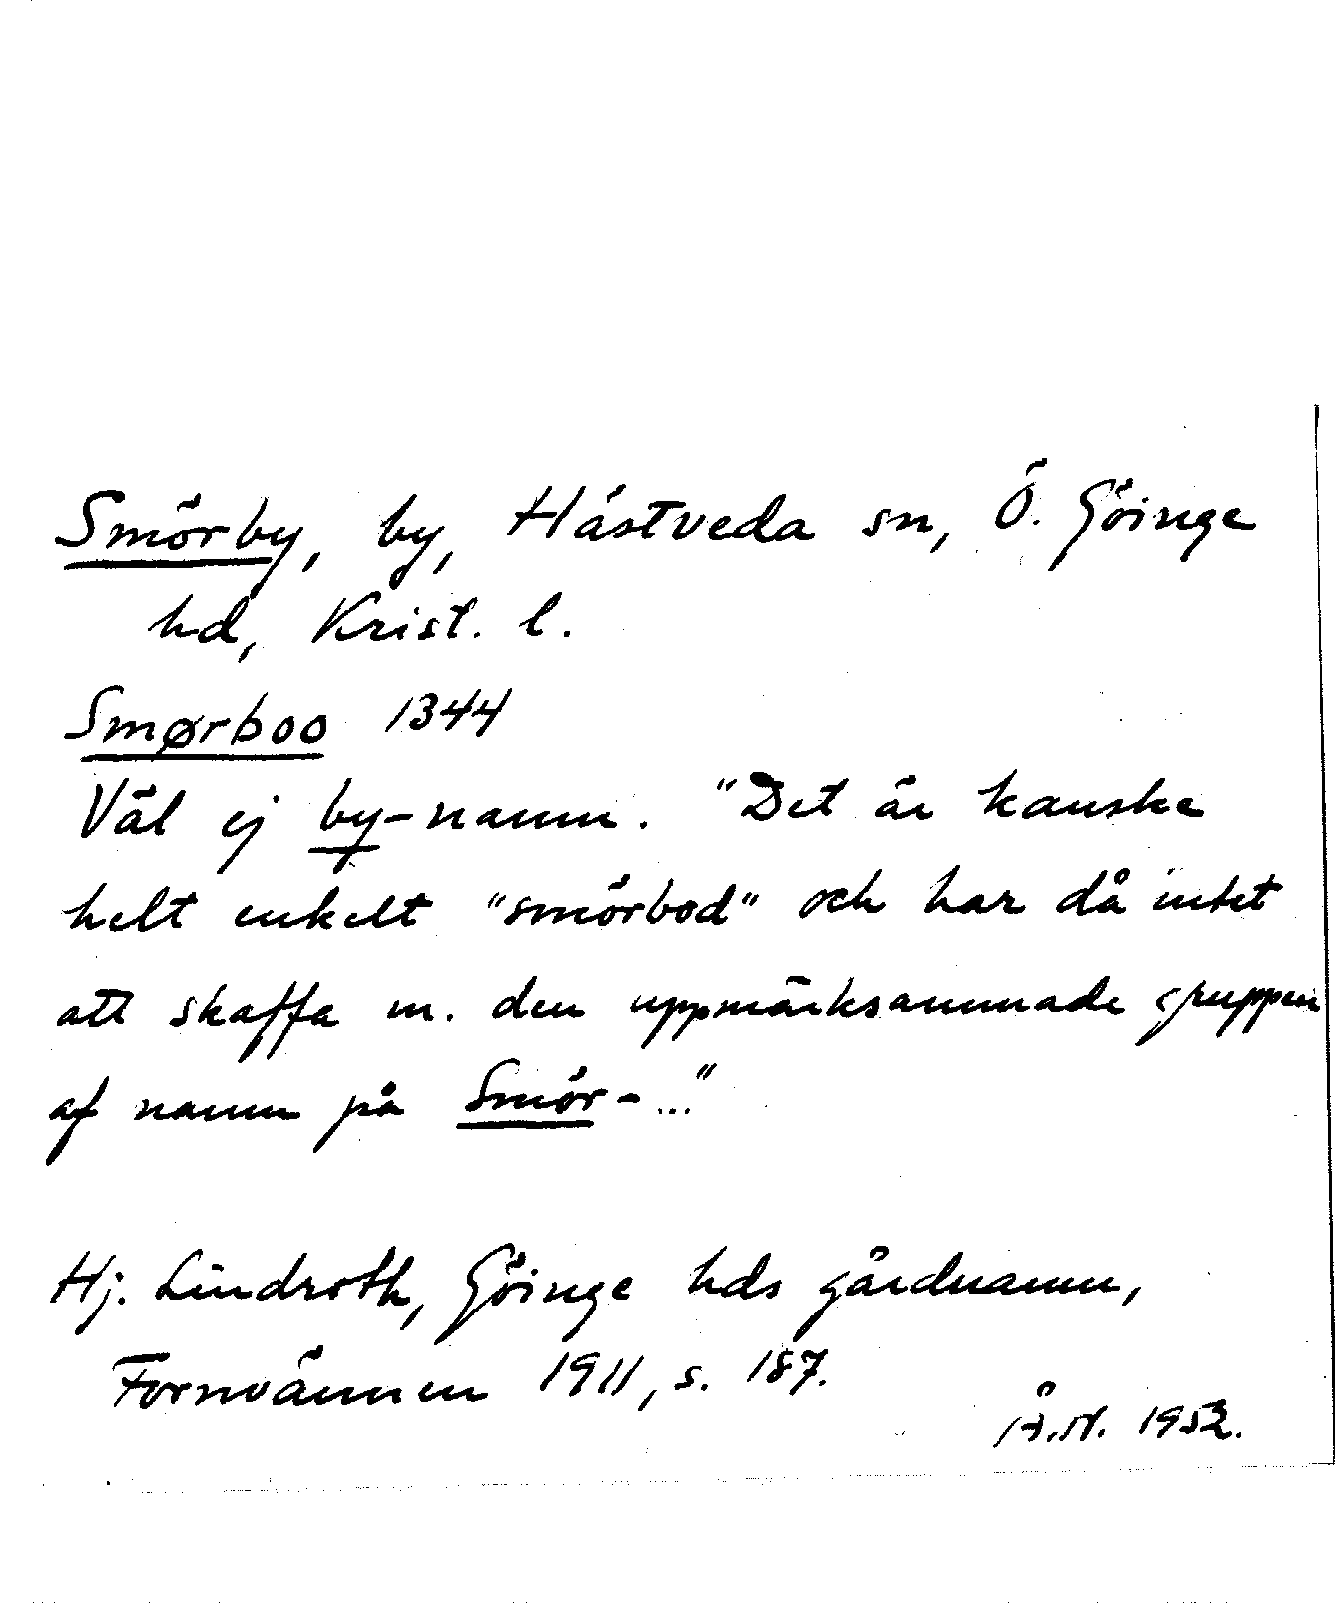 Smörby, by, Hästveda sn, Ö. Göinge
hd, Krist. l.
Smørboo 1344
Väl ej by-namn. "Det är kanske
helt enkelt "smörbod" och har då intet
att skaffa m. den uppmärksammade gruppen
af namn på Smör-..."
Hj. Lindroth, Göinge hds gårdnamn,
Fornvännen 1911, s. 187.
Å.N. 1952.